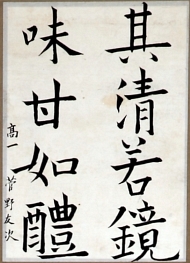 其清若鏡
味甘如醴
高一 菅野友次